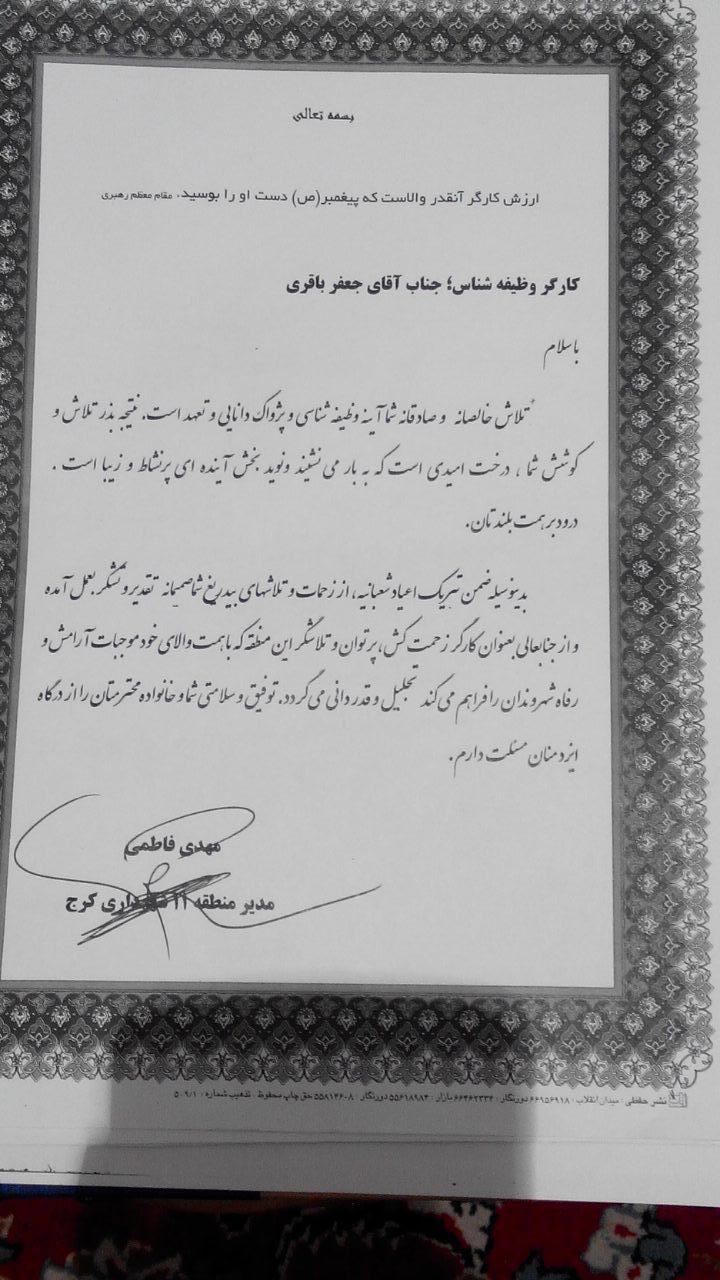 بسمه تعالی
ارزش کارگر آنقدر والاست که پیغمبر(ص) دست او را بوسید. مقام معظم رهبری
کارگر وظیفه شناس؛ جناب آقای جعفر باقری
باسلام
تلاش خالصانه و صادقانه شما آینه وظیفه شناسی و پژواک دانایی و تعهد است. نتیجه بذر تلاش و
کوشش شما ، درخت امیدی است که به بار می نشیند ونوید بخش آینده ای پرنشاط و زیبا است .
درود بر همت بلندتان.
بدینوسیله ضمن تبریک اعیاد شعبانیه، از زحمات و تلاشهای بیدریغ شما صمیمانه تقدیر و تشکر بعمل آمده
و از جنابعالی بعنوان کارگر زحمت کش، پرتوان و تلاشگر این منطقه که با همت والای خود موجبات آرامش و
رفاه شهروندان را فراهم می کند تجلیل و قدردانی می گردد. توفیق و سلامتی شما و خانواده محترمتان را از درگاه
ایزد منان مسئلت دارم.
مهدی فاطمی
مدیر منطقه ۱۱ شهرداری کرج
نشر حفظی : میدان انقلاب : ۶۶۹۵۶۹۱۸ دورنگار : ۶۶۴۶۲۳۳۴ بازار : ۵۵۶۱۸۹۸۴ دورنگار : ۵۵۸۱۴۶۰۸ حق چاپ محفوظ . تذهیب شماره : ۵۰۹/۱